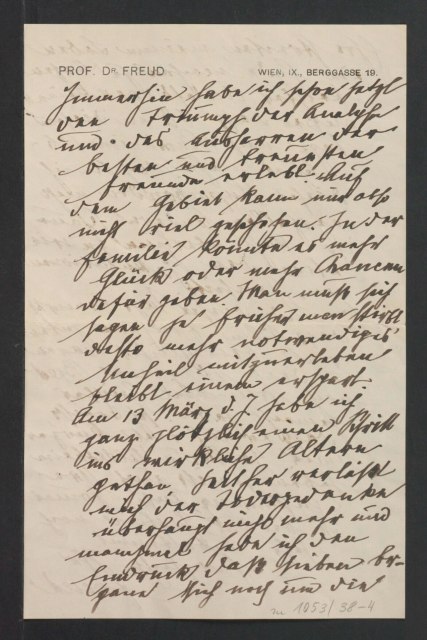 PROF. DR. FREUD
WIEN, IX., BERGGASSE 19.
Immerhin habe ich schon jetzt
den Triumph der Analyse
und das Ausharren der
besten und treuesten
Freunde erlebt. Auf
dem Gebiet kann mir also
nicht viel geschehen. In der
Familie könnte es mehr
Glück oder mehr Chancen
dafür geben. Man muß sich
sagen je früher man stirbt
desto mehr notwendiges
Unheil mitzuerleben
bleibt einem erspart.
Am 13 März d. J. habe ich
ganz plötzlich einen Schritt
ins wirkliche Altern
gethan. Seither verläßt
mich der Todesgedanke
überhaupt nicht mehr und
manchmal habe ich den
Eindruck daß sieben Or-
gane sich noch um die
1053/38-4